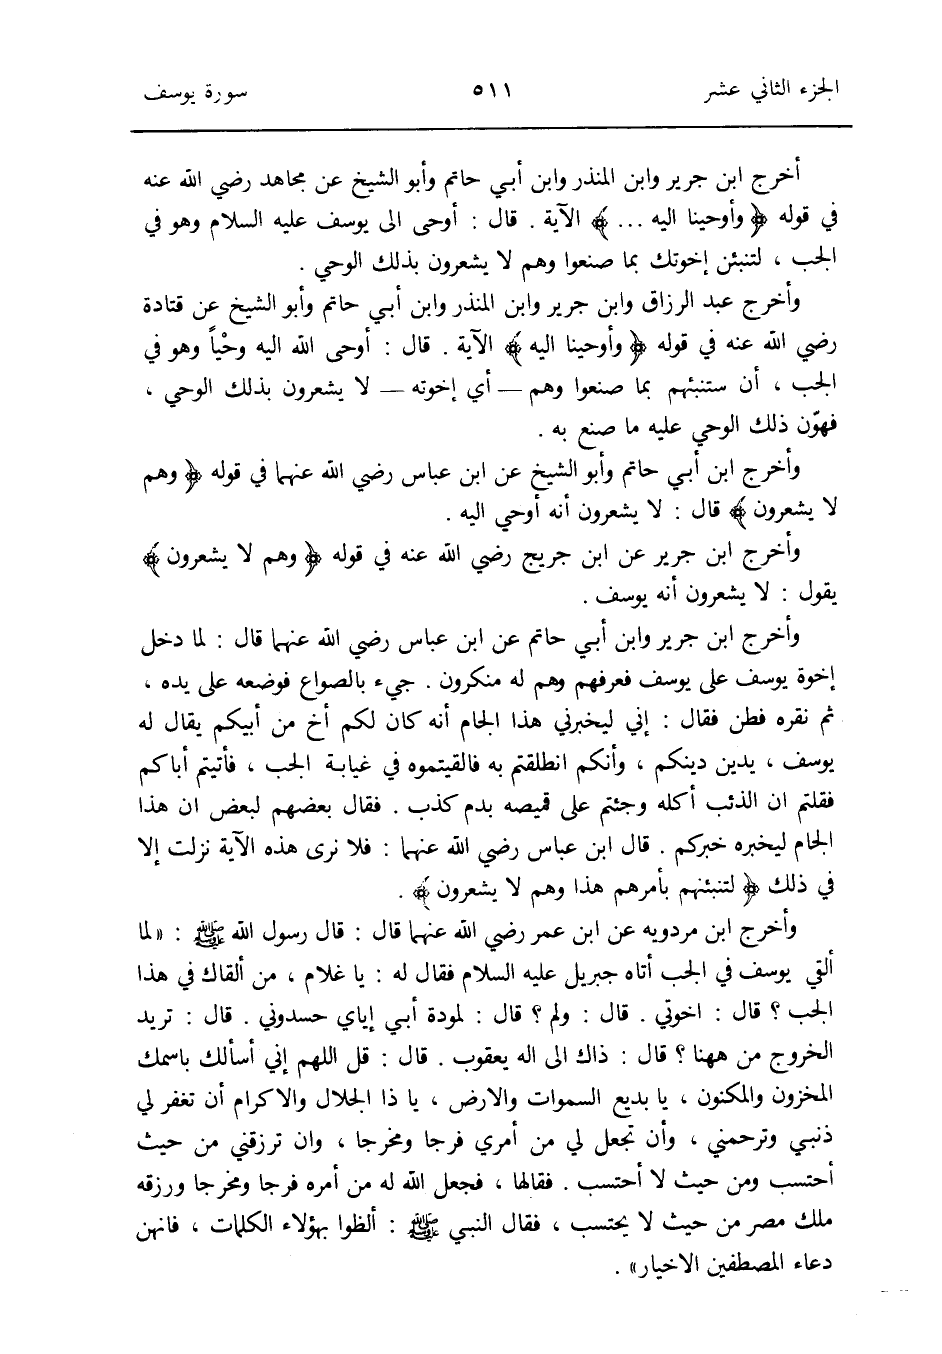 الجزء الثاني عشر ٥١١ سورة يوسف
أخرج ابن جرير وابن المنذر وابن أبي حاتم وأبو الشيخ عن مجاهد رضي الله عنه
في قوله ﴿ وأوحينا اليه ... ﴾ الآية . قال : أوحى الى يوسف عليه السلام وهو في
الجب ، لتنبئن إخوتك بما صنعوا وهم لا يشعرون بذلك الوحي .
وأخرج عبد الرزاق وابن جرير وابن المنذر وابن أبي حاتم وأبو الشيخ عن قتادة
رضي الله عنه في قوله ﴿ وأوحينا اليه ﴾ الآية . قال : أوحى الله اليه وحْياً وهو في
الجب ، أن ستنبئهم بما صنعوا وهم — أي إخوته — لا يشعرون بذلك الوحي ،
فهوّن ذلك الوحي عليه ما صنع به .
وأخرج ابن أبي حاتم وأبو الشيخ عن ابن عباس رضي الله عنهما في قوله ﴿ وهم
لا يشعرون ﴾ قال : لا يشعرون أنه أوحي اليه .
وأخرج ابن جرير عن ابن جريج رضي الله عنه في قوله ﴿ وهم لا يشعرون ﴾
يقول : لا يشعرون أنه يوسف .
وأخرج ابن جرير وابن أبي حاتم عن ابن عباس رضي الله عنهما قال : لما دخل
إخوة يوسف على يوسف فعرفهم وهم له منكرون . جيء بالصواع فوضعه على يده ،
ثم نقره فطن فقال : إني ليخبرني هذا الجام أنه كان لكم أخ من أبيكم يقال له
يوسف ، يدين دينكم ، وأنكم انطلقتم به فالقيتموه في غيابة الجب ، فأتيتم أباكم
فقلتم ان الذئب أكله وجئتم على قميصه بدم كذب . فقال بعضهم لبعض ان هذا
الجام ليخبره خبركم . قال ابن عباس رضي الله عنهما : فلا نرى هذه الآية نزلت إلا
في ذلك ﴿ لتنبئنهم بأمرهم هذا وهم لا يشعرون ﴾ .
وأخرج ابن مردويه عن ابن عمر رضي الله عنهما قال : قال رسول الله ﷺ : «لما
ألقي يوسف في الجب أتاه جبريل عليه السلام فقال له : يا غلام ، من ألقاك في هذا
الجب ؟ قال : اخوتي . قال : ولم ؟ قال : لمودة أبي إياي حسدوني . قال : تريد
الخروج من ههنا ؟ قال : ذاك الى اله يعقوب . قال : قل اللهم إني أسألك باسمك
المخزون والمكنون ، يا بديع السموات والارض ، يا ذا الجلال والاكرام أن تغفر لي
ذنبي وترحمني ، وأن تجعل لي من أمري فرجا ومخرجا ، وان ترزقني من حيث
أحتسب ومن حيث لا أحتسب . فقالها ، فجعل الله له من أمره فرجا ومخرجا ورزقه
ملك مصر من حيث لا يحتسب ، فقال النبي ﷺ : ألظوا بهؤلاء الكلمات ، فانهن
دعاء المصطفين الاخيار» .